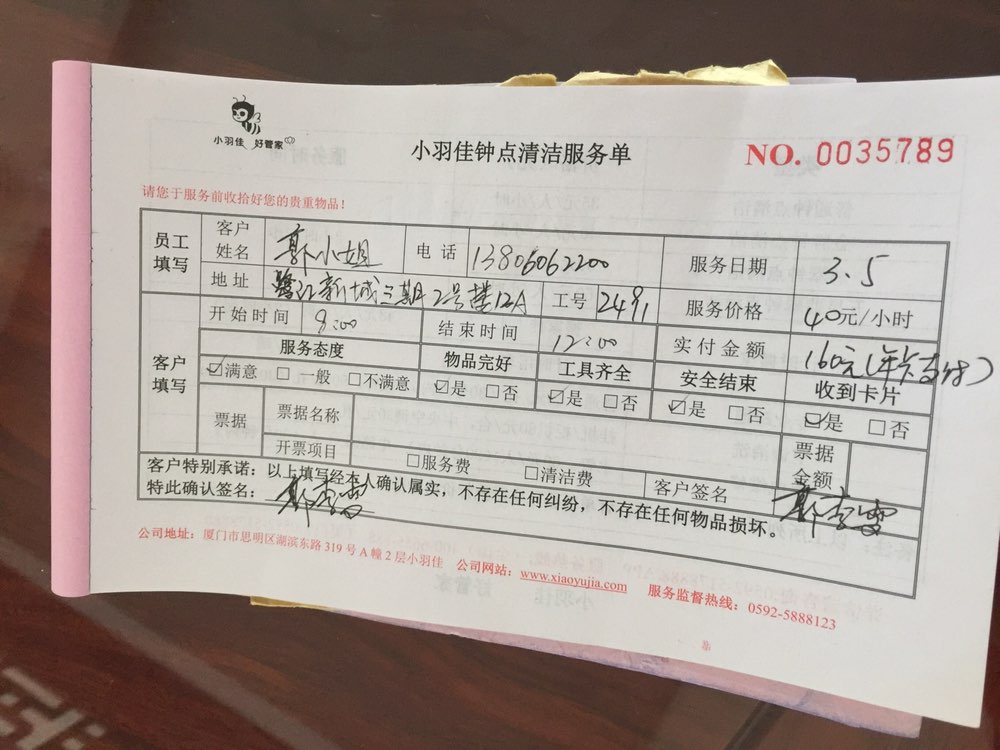 小羽佳 好管家
小羽佳钟点清洁服务单
NO. 0035789
请您于服务前收拾好您的贵重物品！
员工填写 客户姓名 郭小姐 电话 13806062200 服务日期 3.5
地址 鹭江新城三期2号楼12A 工号 2491 服务价格 40元/小时
客户填写 开始时间 8:00 结束时间 12:00 实付金额 160元(年卡支付)
服务态度 物品完好 工具齐全 安全结束 收到卡片
☑满意 □一般 □不满意 ☑是 □否 ☑是 □否 ☑是 □否 ☑是 □否
票据 票据名称 票据金额
开票项目 □服务费 □清洁费 客户签名
客户特别承诺：以上填写经本人确认属实，不存在任何纠纷，不存在任何物品损坏。
特此确认签名：
公司地址：厦门市思明区湖滨东路319号A幢2层小羽佳 公司网站：www.xiaoyujia.com 服务监督热线：0592-5888123